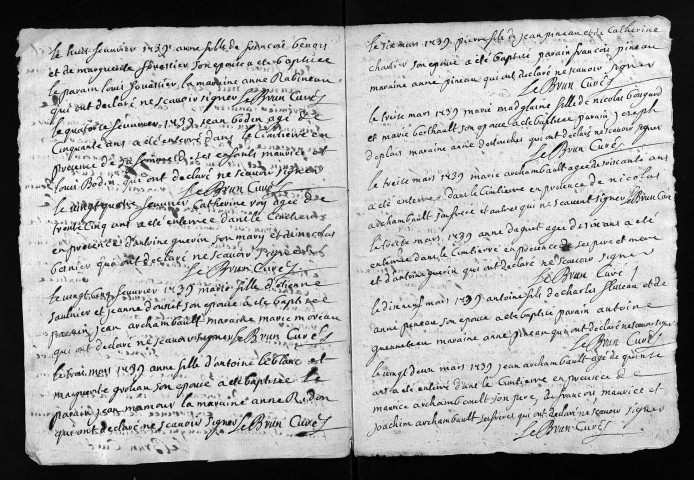 le huit feuvrier 1739 anne fille de francois
et de marguerite forestier son epouse a ete baptisee
le parain louis forestier la maraine anne Rabineau
qui ont declaré ne scavoir signer LeBrun Curé
le quatorse feuvrier 1739 jean bodin agé de
Cinquante ans a eté enterré dans le Cimitiere en
presence de sa femme de ses enfants maurice et
louis Bodin qui ont declaré ne scavoir signer
LeBrun Curé
le vingt quatre feuvrier Catherine roy agee de
trente Cinq ans a eté enterree dans le Cimitiere
en presence d'antoine guerin son mary et de nicolas
bernier qui ont declaré ne scavoir signer
LeBrun Curé
le vingt feuvrier 1739 marie fille d'etienne
saulnier et jeanne son epouse a eté baptisee
parain jean archambault maraine marie moreau
qui ont declaré ne scavoir signer LeBrun Curé
le trois mars 1739 anne fille d'antoine leblanc et
marguerite son epouse a eté baptisee le
parain jean mamour la maraine anne
qui ont declaré ne scavoir signer LeBrun Curé
le six mars 1739 pierre fils de jean pineau et de Catherine
charlier son epouse a eté baptisé parain francois pineau
maraine anne pineau qui ont declaré ne scavoir signer
LeBrun Curé
le treise mars 1739 marie madglaine fille de nicolas bougard
et marie berthault son epouse a eté baptisee parain joseph
deplais maraine anne qui ont declaré ne scavoir signer
LeBrun Curé
le treise mars 1739 marie archambault agee de soixante ans
a eté enterree dans le Cimitiere en presence de nicolas
archambault son frere et autres qui ne scavent signer LeBrun Curé
le treise mars 1739 anne agee de six ans a eté
enterree dans le Cimitiere en presence de ses pere et mere
et d'antoine guerin qui ont declaré ne scavoir signer
LeBrun Curé
le dix neuf mars 1739 antoine fils de charles fluteau et de
anne pineau son epouse a eté baptisé parain antoine
guenneteau maraine anne pineau qui ont declaré ne scavoir signer
LeBrun Curé
le vingt deux mars 1739 jean archambault agé de quinse
ans a eté enterré dans le Cimitiere en presence de
maurice archambault son pere, de francois maurice et
joachim archambault ses freres qui ont declaré ne scavoir signer
LeBrun Curé